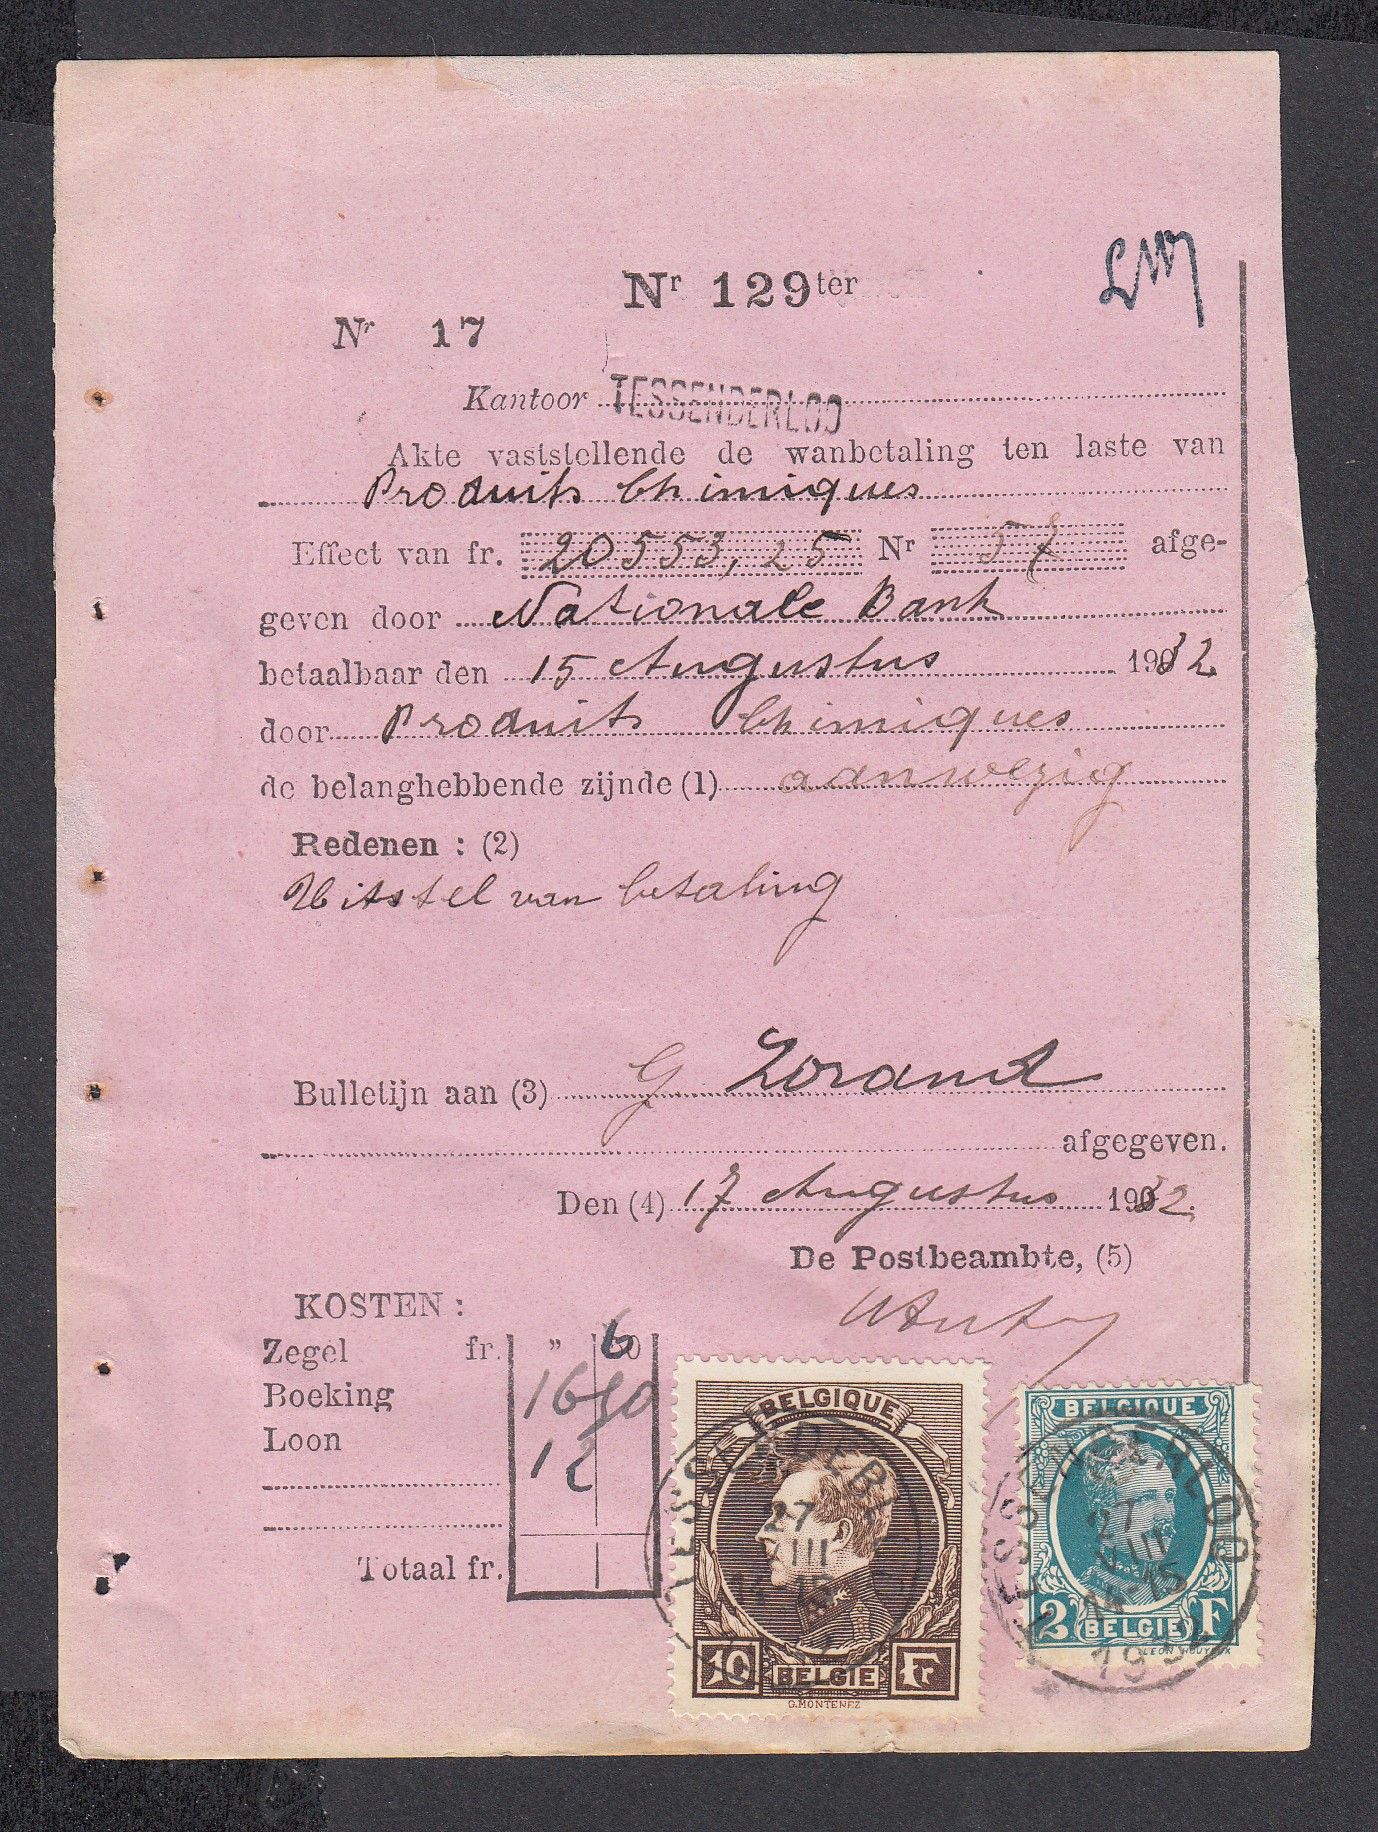 Nr 129ter
Nr 17
Kantoor TESSENDERLOO
Akte vaststellende de wanbetaling ten laste van
Produits Chimiques
Effect van fr. 20553,25 Nr 57 afge-
geven door Nationale Bank
betaalbaar den 15 Augustus 1932
door Produits Chimiques
de belanghebbende zijnde (1) aanwezig
Redenen : (2)
Uitstel van betaling
Bulletijn aan (3) G. Zorand
afgegeven.
Den (4) 17 Augustus 1932.
De Postbeambte, (5)
KOSTEN :
Zegel fr. " 60
Boeking 16 50
Loon 12
Totaal fr.
BELGIQUE
10 BELGIE Fr
G.MONTENEZ
BELGIQUE
2 BELGIE F
LEON HOUYOUX
TESSENDERLOO
27 VIII
TESSENDERLOO
27 VIII 15
1932